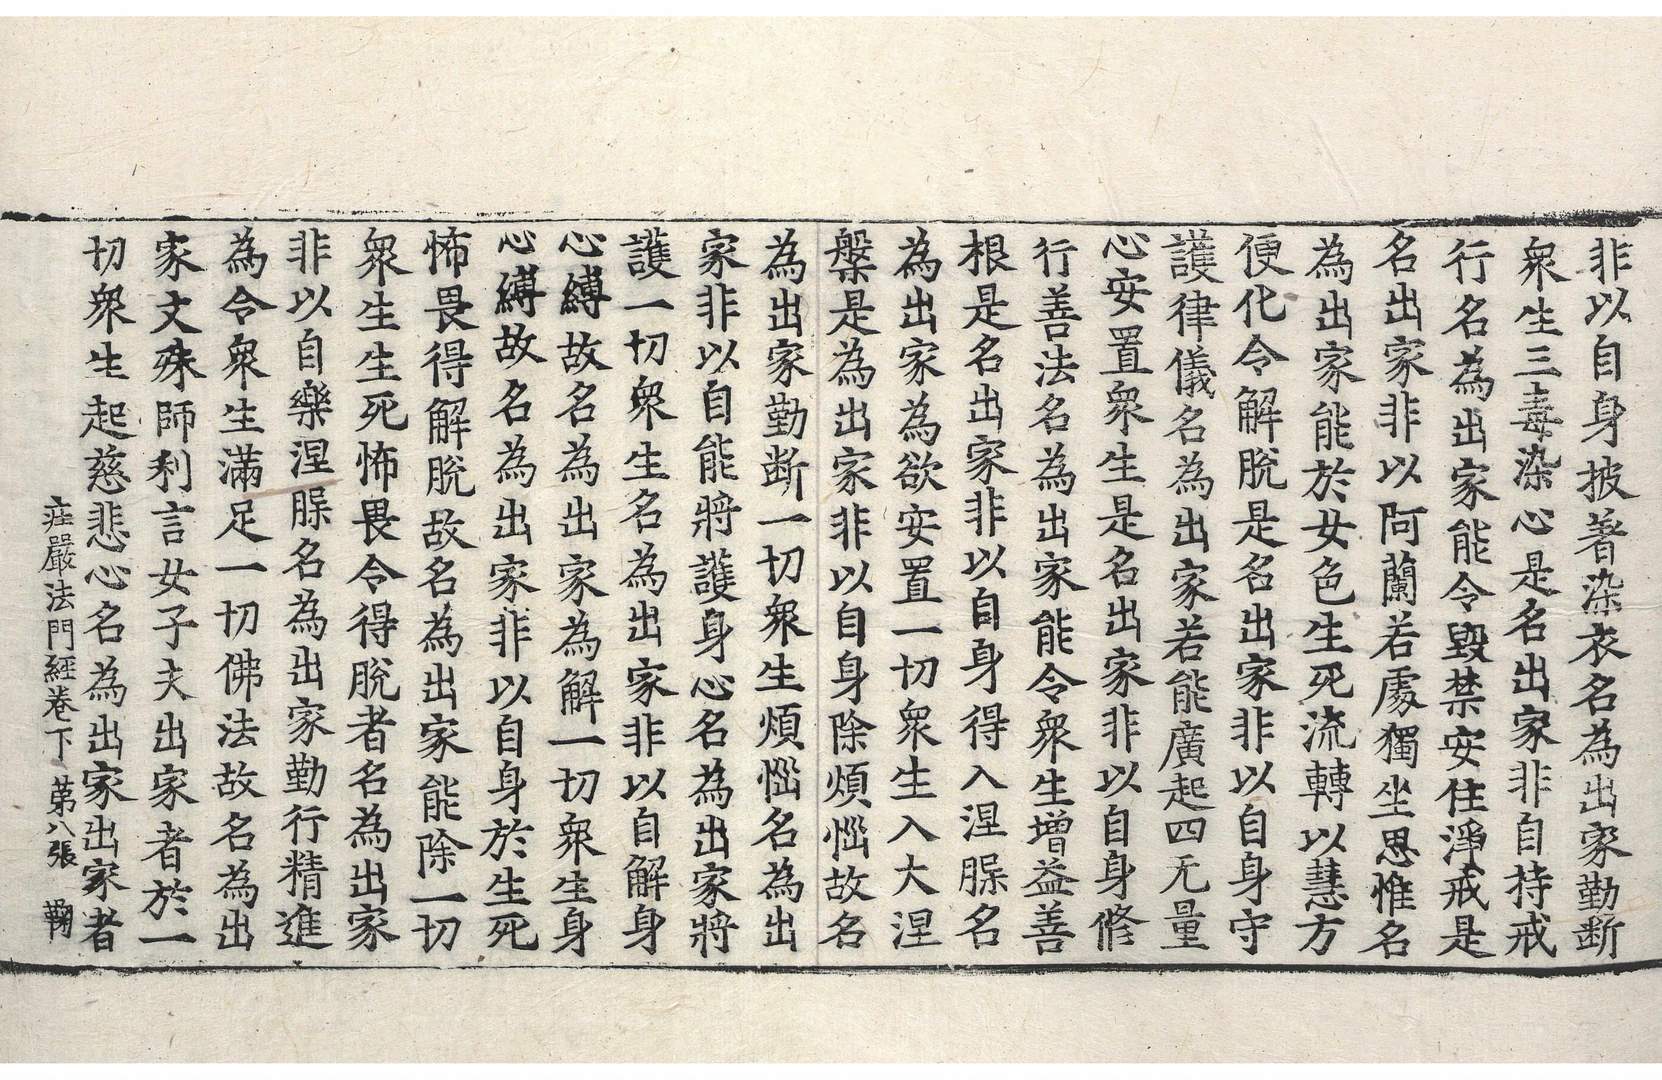 非以自身披著染衣名為出家勤断
衆生三毒染心是名出家非自持戒
行名為出家能令毀禁安住淨戒是
名出家非以阿蘭若處獨坐思惟名
為出家能於女色生死流轉以慧方
便化令解脫是名出家非以自身守
護律儀名為出家若能廣起四无量
心安置衆生是名出家非以自身修
行善法名為出家能令衆生增益善
根是名出家非以自身得入涅槃名
為出家為欲安置一切衆生入大涅
槃是為出家非以自身除煩惱故名
為出家勤断一切衆生煩惱名為出
家非以自能將護身心名為出家將
護一切衆生名為出家非以自解身
心縛故名為出家為解一切衆生身
心縛故名為出家非以自身於生死
怖畏得解脫故名為出家能除一切
衆生生死怖畏令得脫者名為出家
非以自樂涅槃名為出家勤行精進
為令衆生滿足一切佛法故名為出
家文殊師利言女子夫出家者於一
切衆生起慈悲心名為出家出家者
庄嚴法門經卷下 第八張 鞠